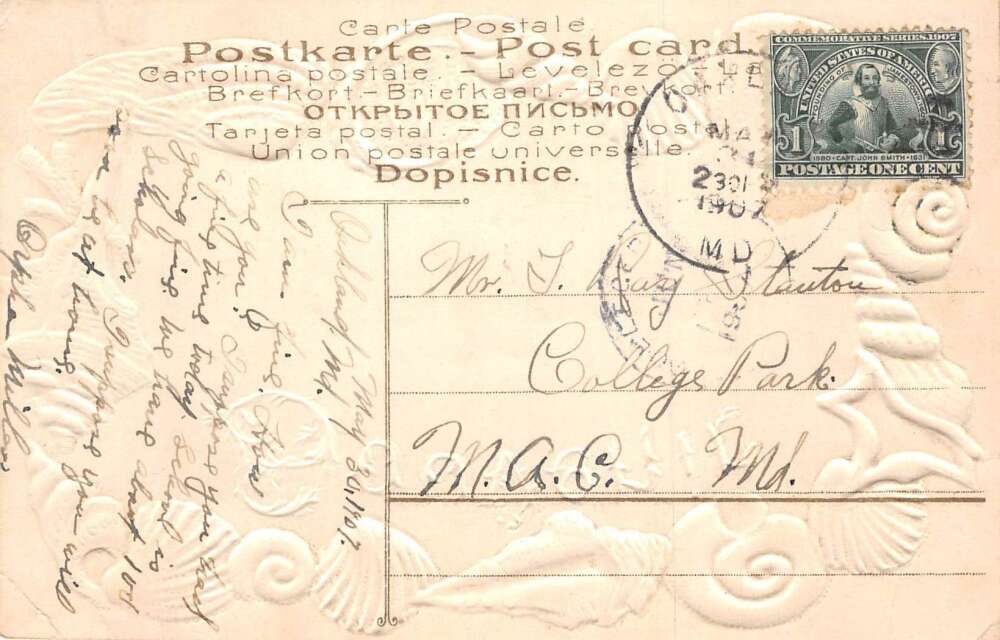 Carte Postale
Postkarte. - Post card.
Cartolina postale. - Levelezö - La
Brefkort. - Briefkaart. - Brevkort.
ОТКРЫТОЕ ПИСЬМО
Tarjeta postal. - Carto posta
Union postale universelle.
Dopisnice.
COMMEMORATIVE SERIES, 1907
UNITED STATES OF AMERICA
FOUNDING OF JAMESTOWN
1 1
1580 · CAPT. JOHN SMITH · 1631
POSTAGE ONE CENT
MAY
31
1907
MD
COLLEGE
Mr. T. Ray Stanton
College Park.
M. A. C. Md.
Oakland, Md.
May 30, 1907.
I am fine. How
are you? Suppose you had
a fine time today. School is
going fine we have about 100
scholars. Suppose you will
be at home.
Miller